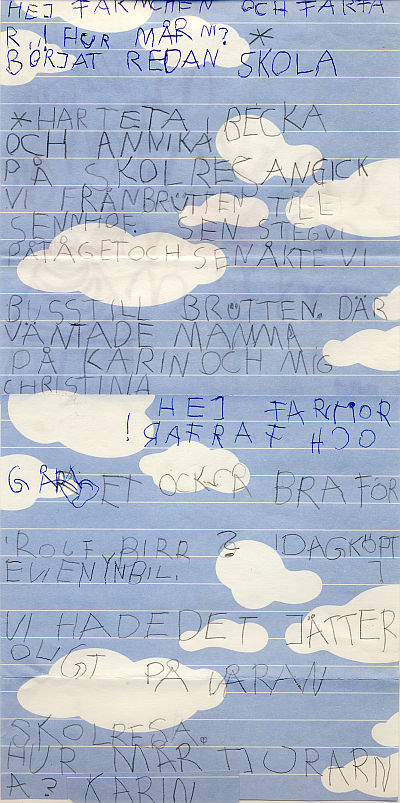 HEJ FARMCHEN OCH FARFA
R ! HUR MÅR NI? *
BÖRJAT REDAN SKOLA
*HAR TETA, BECKA
OCH ANNIKA
PÅ SKOLRESAN GICK
VI FRÅN BRÜTTEN TILL
SENNHOF. SEN STEG VI
PÅ TÅGET OCH SEN ÅKTE VI
BUSS TILL BRÜTTEN. DÄR
VÄNTADE MAMMA
PÅ KARIN OCH MIG
CHRISTINA
HEJ FARMOR
OCH FARFAR !
GÅR DET OCKSÅ BRA FÖR
ROLF BIRR ? IDAG KÖPT
E VI EN NY BIL.
VI HADE DET JÄTTER
OLIGT PÅ VÅRAN
SKOLRESA.
HUR MÅR TJURARN
A? KARIN